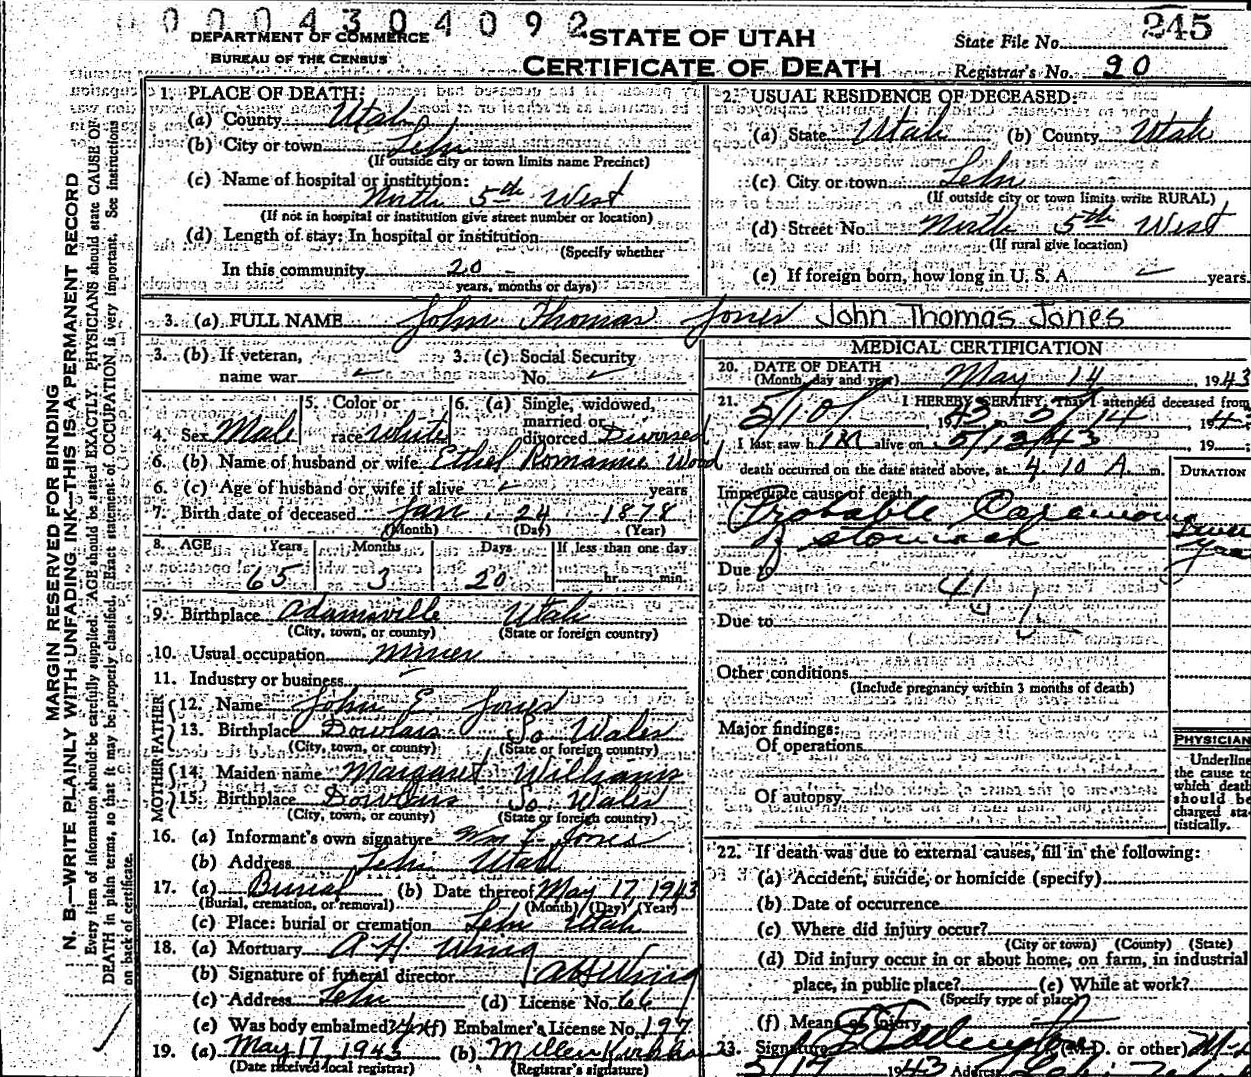 0 0 0 4 3 0 4 0 9 2
245
DEPARTMENT OF COMMERCE
BUREAU OF THE CENSUS
STATE OF UTAH
CERTIFICATE OF DEATH
State File No.
Registrar's No. 20
MARGIN RESERVED FOR BINDING
N. B.—WRITE PLAINLY WITH UNFADING INK—THIS IS A PERMANENT RECORD
Every item of information should be carefully supplied. AGE should be stated EXACTLY. PHYSICIANS should state CAUSE OF
DEATH in plain terms, so that it may be properly classified. Exact statement of OCCUPATION is very important. See instructions
on back of certificate.
1. PLACE OF DEATH:
(a) County Utah
(b) City or town Lehi
(If outside city or town limits name Precinct)
(c) Name of hospital or institution:
North 5th West
(If not in hospital or institution give street number or location)
(d) Length of stay: In hospital or institution
(Specify whether
In this community 20
years, months or days)
2. USUAL RESIDENCE OF DECEASED:
(a) State Utah (b) County Utah
(c) City or town Lehi
(If outside city or town limits write RURAL)
(d) Street No. North 5th West
(If rural give location)
(e) If foreign born, how long in U. S. A. years.
3. (a) FULL NAME John Thomas Jones John Thomas Jones
3. (b) If veteran, name war
3. (c) Social Security No.
4. Sex Male
5. Color or race White
6. (a) Single, widowed, married or divorced Divorsed
6. (b) Name of husband or wife Ethel Romamie Wood
6. (c) Age of husband or wife if alive years
7. Birth date of deceased Jan. 24 1878
(Month) (Day) (Year)
8. AGE Years Months Days If less than one day
65 3 20 hr. min.
9. Birthplace Adamsville Utah
(City, town, or county) (State or foreign country)
10. Usual occupation Miner
11. Industry or business
FATHER
12. Name John E Jones
13. Birthplace Dowlais So Wales
(City, town, or county) (State or foreign country)
MOTHER
14. Maiden name Margaret Williams
15. Birthplace Dowlais So. Wales
(City, town, or county) (State or foreign country)
16. (a) Informant's own signature Wm E. Jones
(b) Address Lehi Utah
17. (a) Burial (b) Date thereof May 17 1943
(Burial, cremation, or removal) (Month) (Day) (Year)
(c) Place: burial or cremation Lehi Utah
18. (a) Mortuary A. H. Wing
(b) Signature of funeral director A H Wing
(c) Address Lehi (d) License No. 66
(e) Was body embalmed? (f) Embalmer's License No. 197
19. (a) May 17, 1943 (b)
(Date received local registrar) (Registrar's signature)
MEDICAL CERTIFICATION
20. DATE OF DEATH
(Month, day and year) May 14, 1943
21. I HEREBY CERTIFY, That I attended deceased from
5/10/ 1943 to 5/14 194
I last saw him alive on 5/13/43 19
death occurred on the date stated above, at 4.10 A. m.
DURATION
Immediate cause of death
Probable Carcinoma
of stomach
Due to
Due to
Other conditions
(Include pregnancy within 3 months of death)
Major findings:
Of operations
Of autopsy
PHYSICIAN
Underline
the cause to
which death
should be
charged sta-
tistically.
22. If death was due to external causes, fill in the following:
(a) Accident, suicide, or homicide (specify)
(b) Date of occurrence
(c) Where did injury occur?
(City or town) (County) (State)
(d) Did injury occur in or about home, on farm, in industrial
place, in public place? (e) While at work?
(Specify type of place)
(f) Means of injury
23. Signature (M.D. or other) M.D
5/17 1943 Address